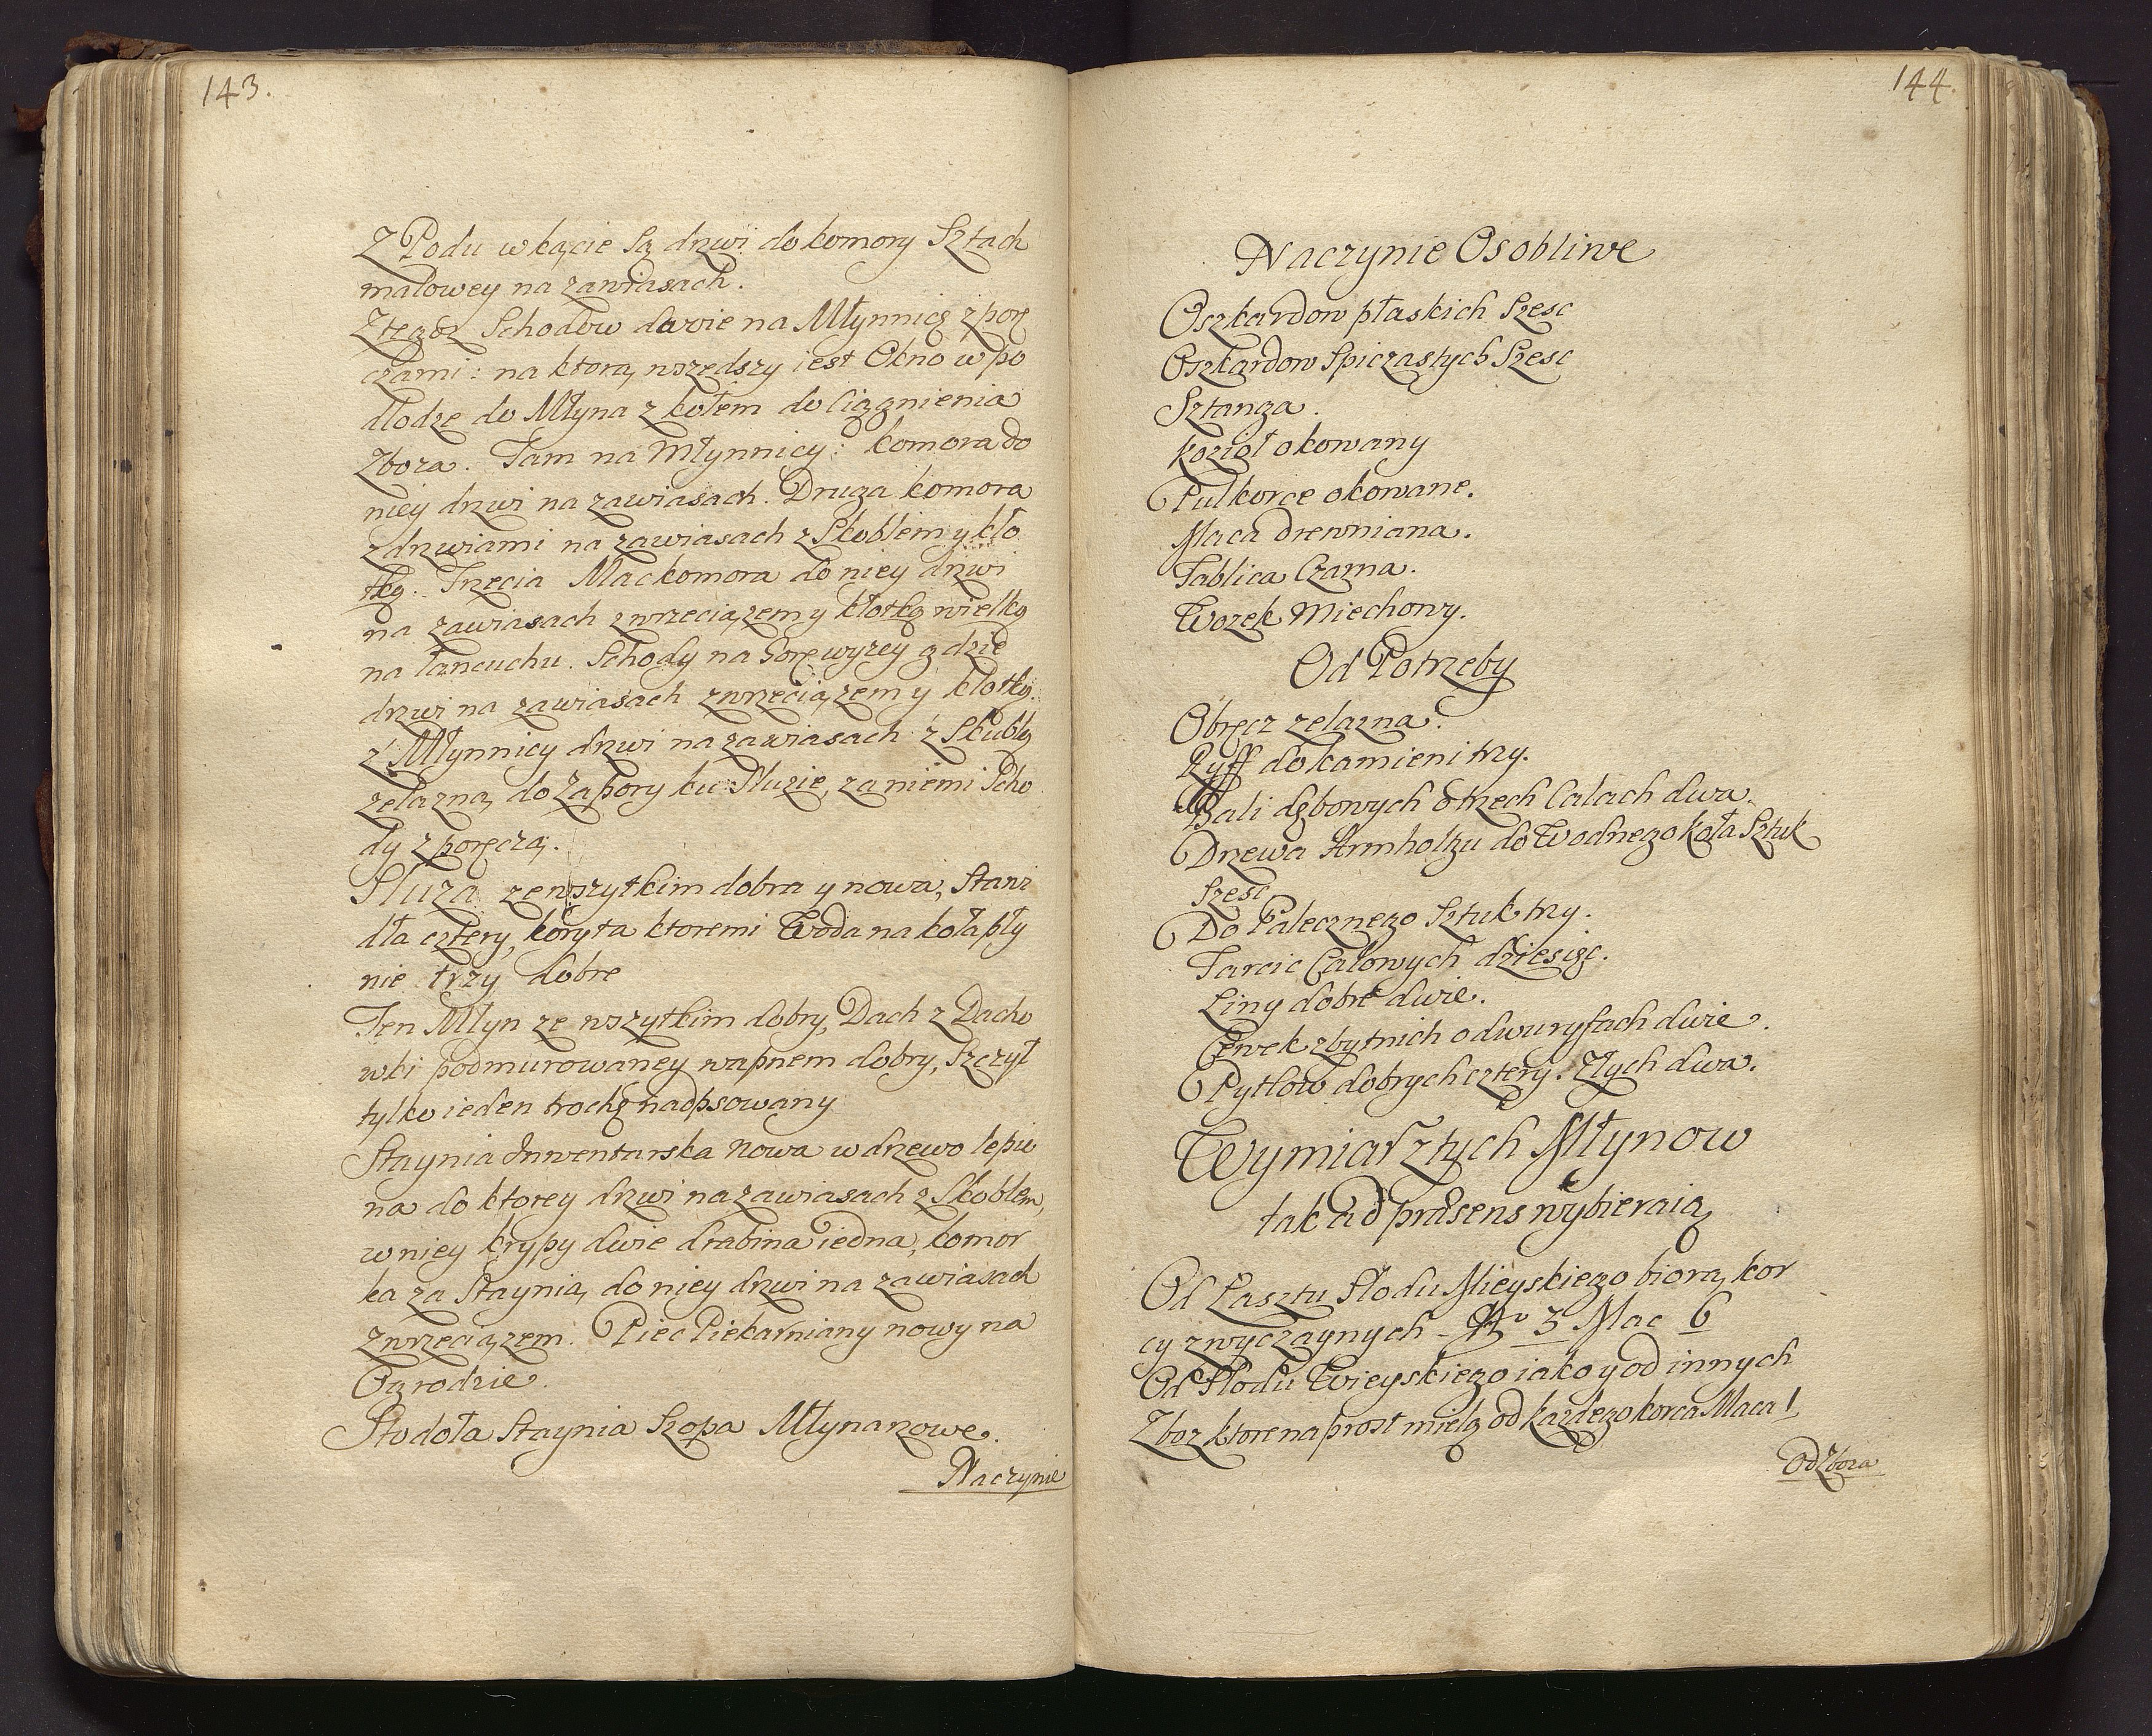 143.
Z Podu w kącie Są drzwi do komory Sztach
malowey na zawiasach.
Schodow dwie na Młynnicę z porę
czami: na ktorą wszedszy iest Okno w po
dłodze do Młyna z kołem do Ciągnienia
Zboza. Tam na Młynnicy: komora do
niey drzwi na zawiasach. Druga komora
z drzwiami na zawiasach z Skoblem y kło
tką. Trzecia Mackomora do niey drzwi
na zawiasach z wrzeciązem y kłotką wielką
na łancuchu. Schody na Gorę wyzey gdzie
drzwi na zawiasach z wrzeciązem y kłotką.
z Młynnicy drzwi na zawiasach z Skublą
zelazną do Zapory ku Sluzie, za niemi Scho
dy z poręczą.
Sluza ze wszytkim dobra y nowa, Stawi
dła cztery, koryta ktoremi Woda na koła pły
nie trzy dobre
Ten Młyn ze wszytkim dobry, Dach z Dacho
wki podmurowaney wapnem dobry, Szczyt
tylko ieden trochę nadpsowany
Staynia Inwentarska Nowa w drzewo lepio
na do ktorey drzwi na zawiasach z Skoblem,
w niey krypy dwie drabina iedna, komor
ka za Staynią do niey drzwi na zawiasach
z wrzeciązem. Piec Piekarniany nowy na
Ogrodzie.
Stodoła Staynia Szopa Młynarzowe.
Naczynie
144.
Naczynie Osobliwe
Oszkardow płaskich Szesc
Oszkardow Spiczastych Szesc
Sztanga.
Kozioł okowany
Pulkorce okowane.
Maca drewniana.
Tablica Czarna.
Wozek Miechowy.
Od Potrzeby
Obręcz zelazna.
Ryff do kamieni trzy.
Bali dębowych o trzech Calach dwa.
Drzewa Armholtzu do Wodnego koła Sztuk
Szesc
Do Palecznego Sztuk trzy.
Tarcic Calowych dziesięc.
Liny dobre dwie.
Cewek zbytnich o dwu ryfach dwie.
Pytlow dobrych cztery. Złych dwa.
Wymiar z tych Młynow
tak ad præsens wybieraią
Od Lasztu Słodu Mieyskiego biorą kor
cy zwyczaynych - No 3 Mac 6
Od Słodu Wieyskiego iako y od innych
Zboz ktore na prost mielą od kazdego korca Maca 1.
Od Zboza